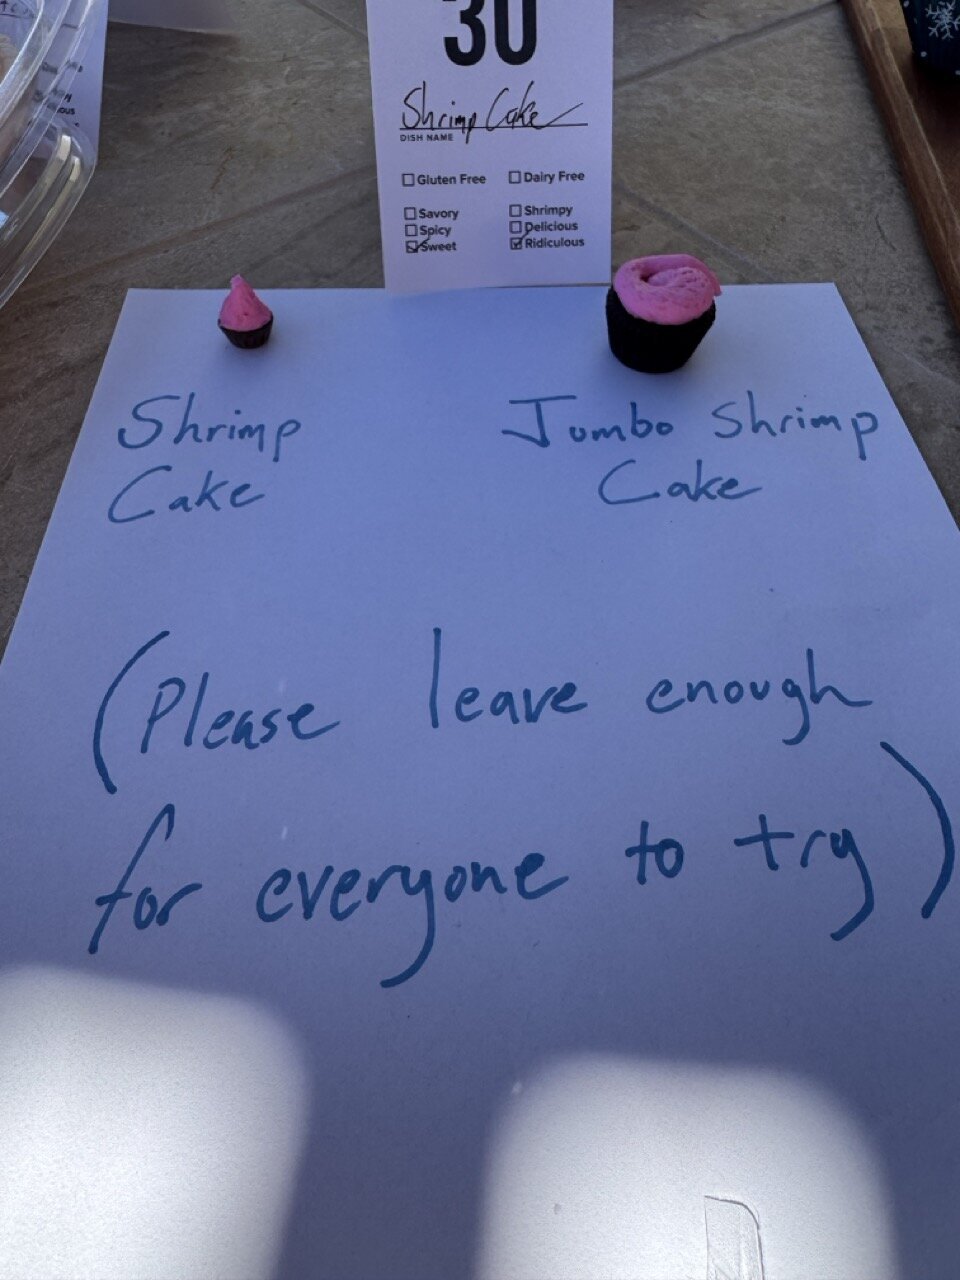 30
Shrimp Cake
DISH NAME
Gluten Free Dairy Free
Savory Shrimpy
Spicy Delicious
Sweet Ridiculous
Shrimp Jumbo Shrimp
Cake Cake
(Please leave enough
for everyone to try)